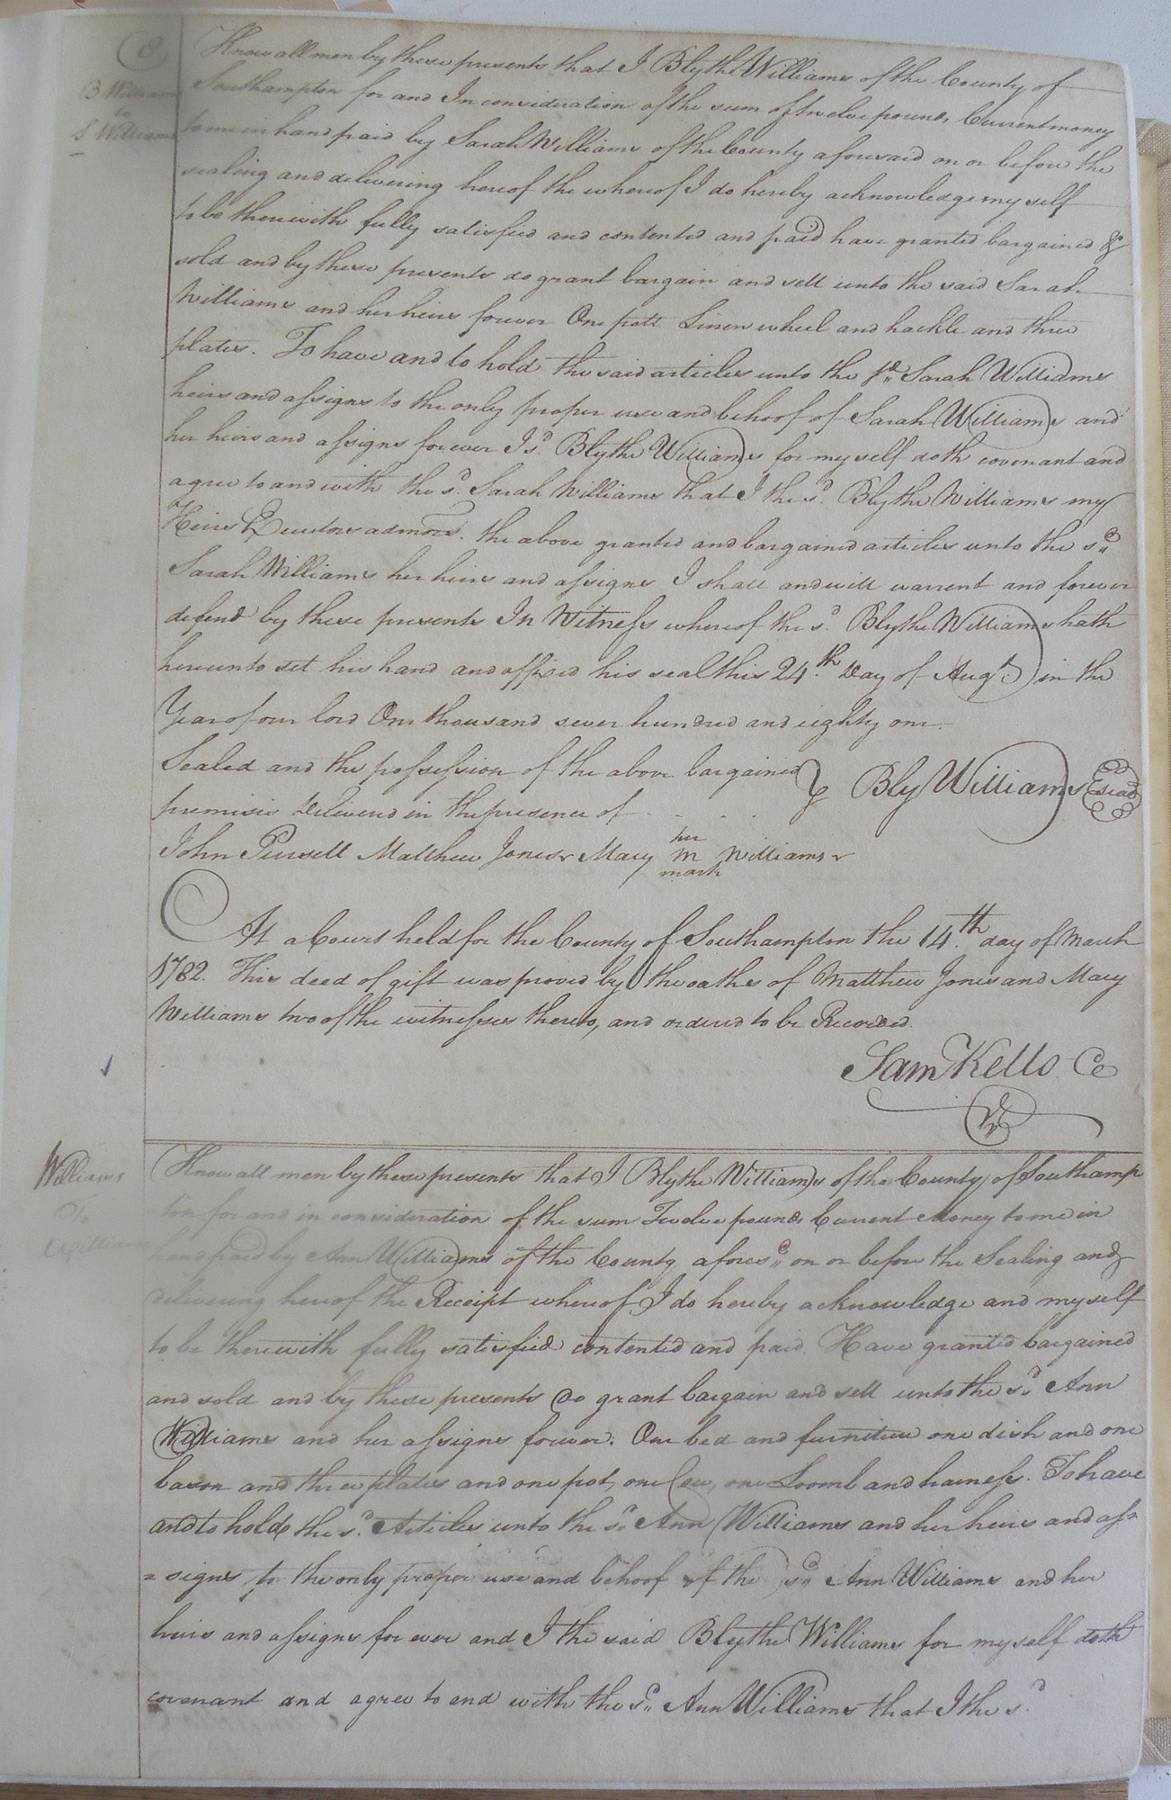 8
B Williams
to
S Williams
Know all men by these presents that I Blythe Williams of the County of
Southampton for and In consideration of the sum of twelve pounds Current money
to me in hand paid by Sarah Williams of the County aforesaid on or before the
sealing and delivering hereof the whereof I do hereby acknowledge my self
to be therewith fully satisfied and contented and paid have granted bargained &
sold and by these presents do grant bargain and sell unto the said Sarah
Williams and her heirs forever One pott Linen wheel and hackle and three
plates. To have and to hold the said articles unto the sd. Sarah Williams
heirs and assigns to the only proper use and behoof of Sarah Williams and
her heirs and assigns forever I sd. Blythe Williams for my self doth covenant and
agree to and with the sd. Sarah Williams that I the sd. Blythe Williams my
Heirs Executors admors. the above granted and bargained articles unto the sd.
Sarah Williams her heirs and assigns I shall and will warrent and forever
defend by these presents In Witness whereof the sd. Blythe Williams hath
hereunto set his hand and affixed his seal this 24th. Day of Augt. in the
Year of our lord One thousand seven hundred and eighty one.
Sealed and the possession of the above bargained } Bly Williams (seal)
premises Delivered in the presence of . . . .
John Pursell Matthew Jones Mary her M mark Williams
At a Court held for the County of Southampton the 14th. day of March
1782. This deed of gift was proved by the oaths of Matthew Jones and Mary
Williams two of the witnesses thereto, and ordered to be Recorded.
Sam Kello Cc
Williams
to
Williams
Know all men by these presents that I Blythe Williams of the County of Southamp
ton for and in consideration of the sum Twelve pounds Current Money to me in
hand paid by Ann Williams of the County afores'd on or before the Sealing and
delivering hereof the Receipt whereof I do hereby acknowledge and my self
to be therewith fully satisfied contented and paid Have granted bargained
and sold and by these presents Do grant bargain and sell unto the sd. Ann
Williams and her assigns forever. One bed and furniture one dish and one
bason and three plates and one pot, one Cow, one Loomb and harness. To have
and to hold the sd. Articles unto the sd. Ann Williams and her heirs and as
= signs to the only proper use and behoof of the sd. Ann Williams and her
heirs and assigns for ever and I the said Blythe Williams for my self doth
covenant and agree to and with the sd. Ann Williams that I the sd.